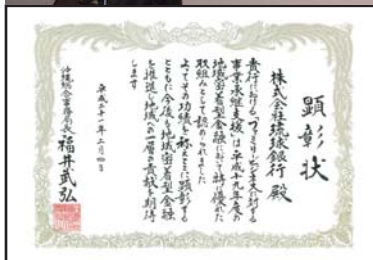 顕彰状
株式会社琉球銀行 殿
貴行における、ファミリービジネスに対する
事業承継支援は平成十九年度の
地域密着型金融において特に優れた
取組みとして認められました
よってその功績を称えここに顕彰する
とともに今後も地域密着型金融
を推進し地域への一層の貢献を期待
します
平成二十一年三月四日
沖縄総合事務局長 福井武弘